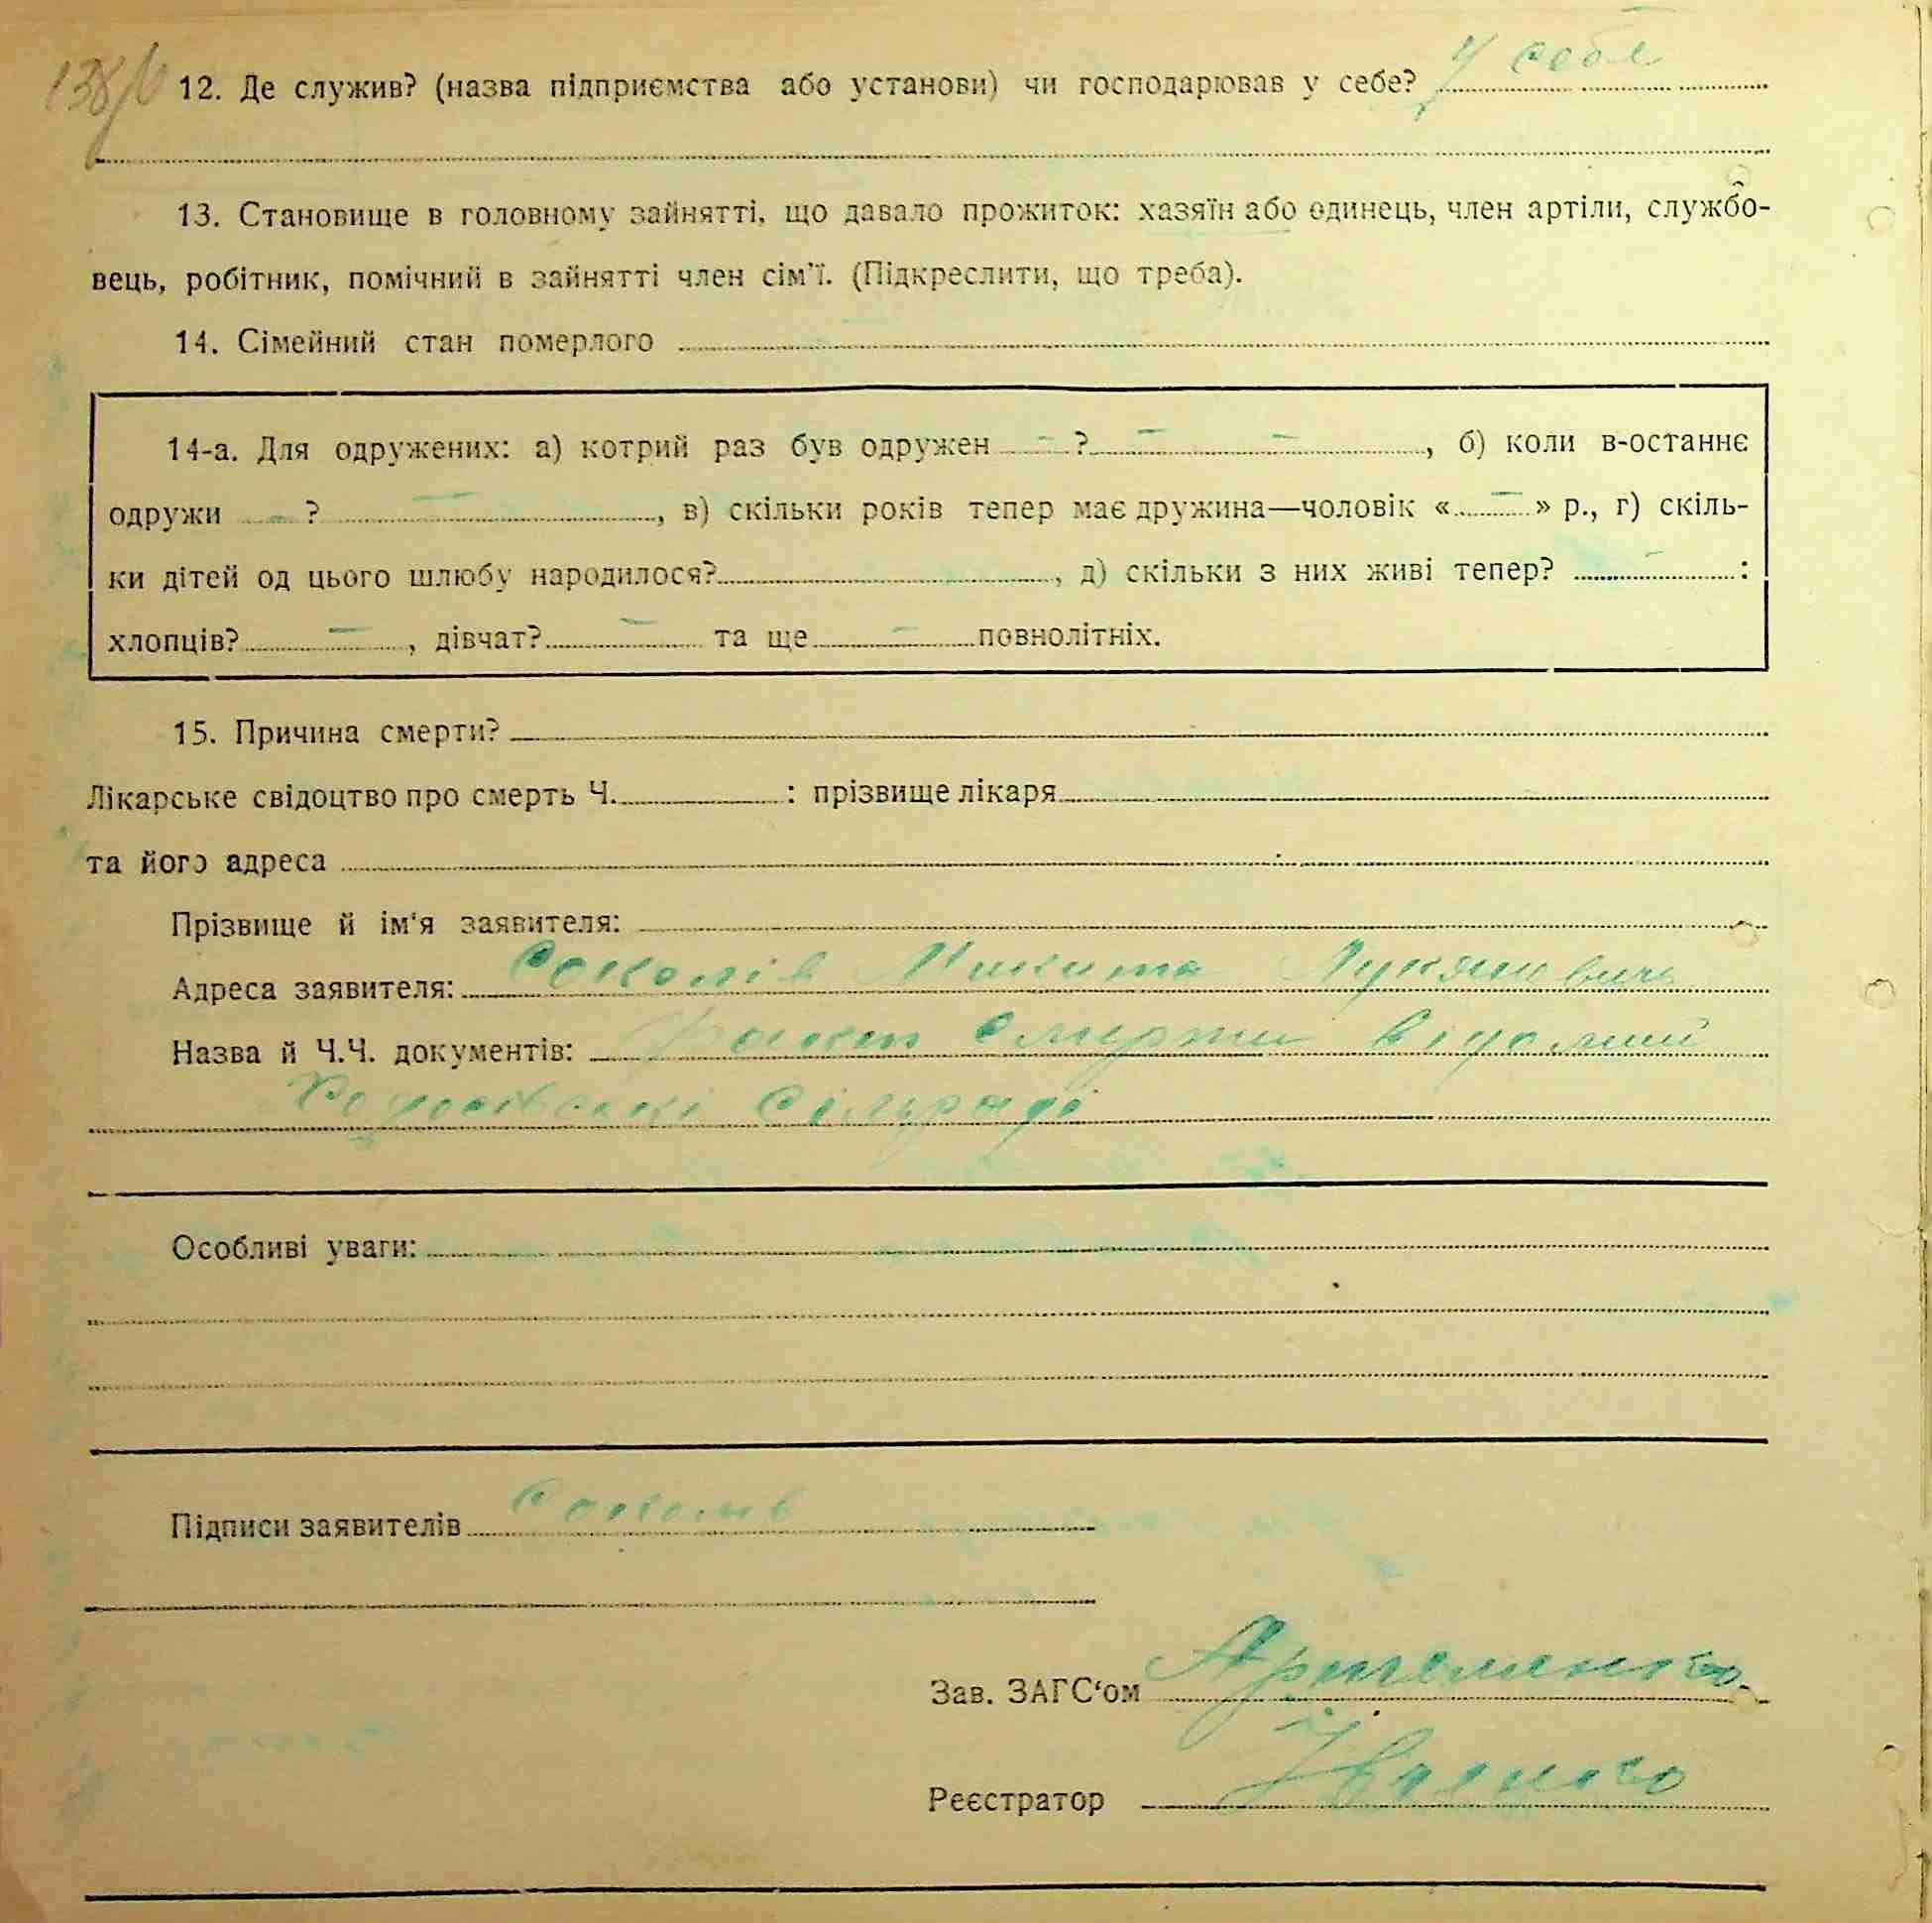 12. Де служив? (назва підприємства або установи) чи господарював у себе? у себе
13. Становище в головному зайнятті, що давало прожиток: хазяїн або одинець, член артіли, службо-
вець, робітник, помічний в зайнятті член сім'ї. (Підкреслити, що треба).
14. Сімейний стан померлого
14-а. Для одружених: а) котрий раз був одружен – ? – –, б) коли в-останнє
одружи – ? –, в) скільки років тепер має дружина—чоловік «–» р., г) скіль-
ки дітей од цього шлюбу народилося?, д) скільки з них живі тепер? – :
хлопців? –, дівчат? – та ще – повнолітніх.
15. Причина смерти?
Лікарське свідоцтво про смерть Ч. : прізвище лікаря
та його адреса
Прізвище й ім'я заявителя:
Адреса заявителя: Соколів Микита Лукянович
Назва й Ч.Ч. документів: факт смерти відомий
сільраді
Особливі уваги:
Підписи заявителів Соколів
Зав. ЗАГС'ом Артеменко
Реєстратор